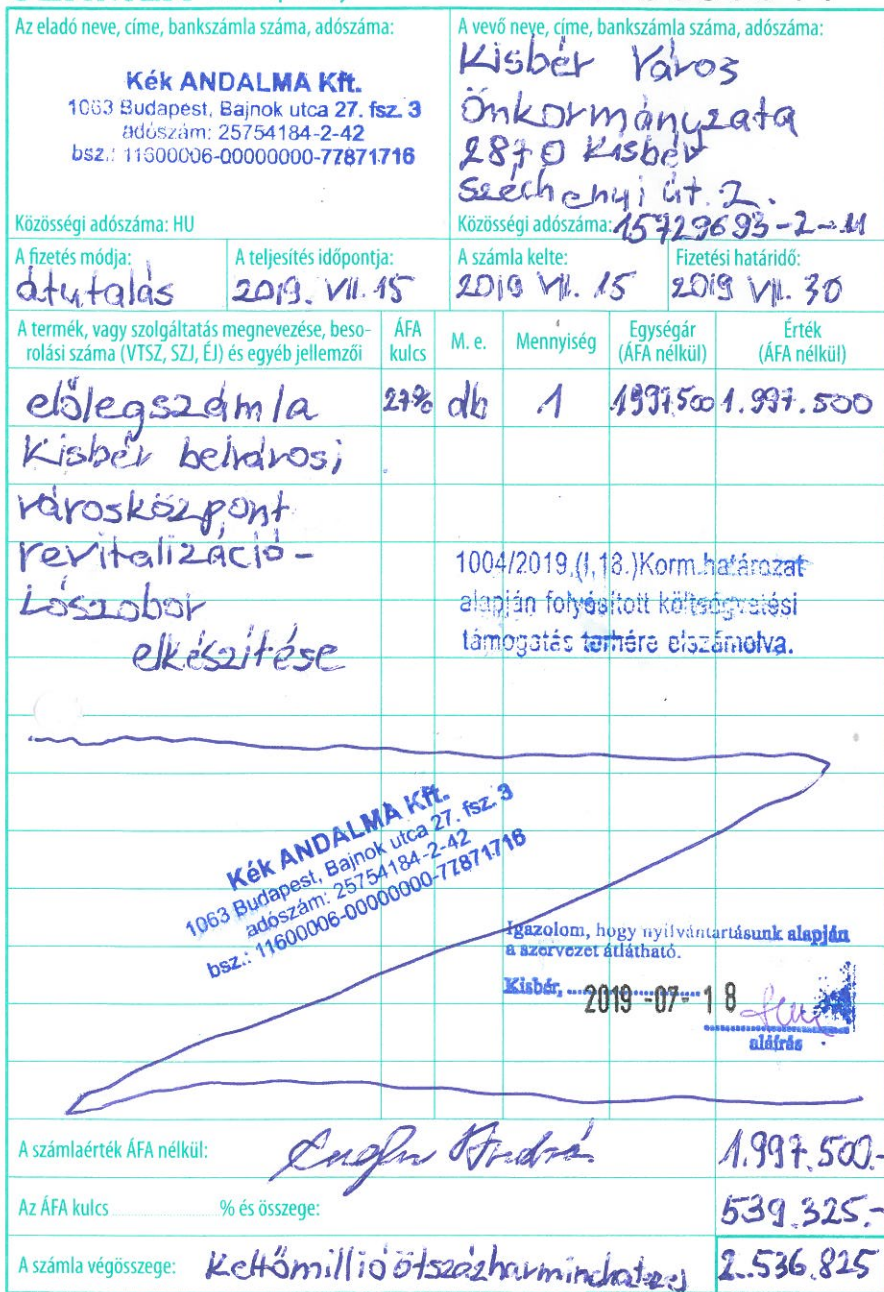 Az eladó neve, címe, bankszámla száma, adószáma:
Kék ANDALMA Kft.
1063 Budapest, Bajnok utca 27. fsz. 3
adószám: 25754184-2-42
bsz.: 11600006-00000000-77871716
Közösségi adószáma: HU
A vevő neve, címe, bankszámla száma, adószáma:
Kisbér Város
Önkormányzata
2870 Kisbér
Széchenyi út. 2.
Közösségi adószáma: 15729693-2-11
A fizetés módja:
átutalás
A teljesítés időpontja:
2019. VII. 15
A számla kelte:
2019 VII. 15
Fizetési határidő:
2019 VII. 30
A termék, vagy szolgáltatás megnevezése, beso-
rolási száma (VTSZ, SZJ, ÉJ) és egyéb jellemzői
ÁFA
kulcs
M. e.
Mennyiség
Egységár
(ÁFA nélkül)
Érték
(ÁFA nélkül)
előlegszámla 27% db 1 1997.500 1.997.500
Kisbér belvárosi
városközpont
revitalizáció-
Lószobor
elkészítése
1004/2019.(I.18.)Korm.határozat
alapján folyósított költségvetési
támogatás terhére elszámolva.
Kék ANDALMA Kft.
1063 Budapest, Bajnok utca 27. fsz. 3
adószám: 25754184-2-42
bsz.: 11600006-00000000-77871716
Igazolom, hogy nyilvántartásunk alapján
a szervezet átlátható.
Kisbér, 2019-07-18
aláírás
A számlaérték ÁFA nélkül: 1.997.500.-
Az ÁFA kulcs % és összege: 539.325.-
A számla végösszege: 2.536.825